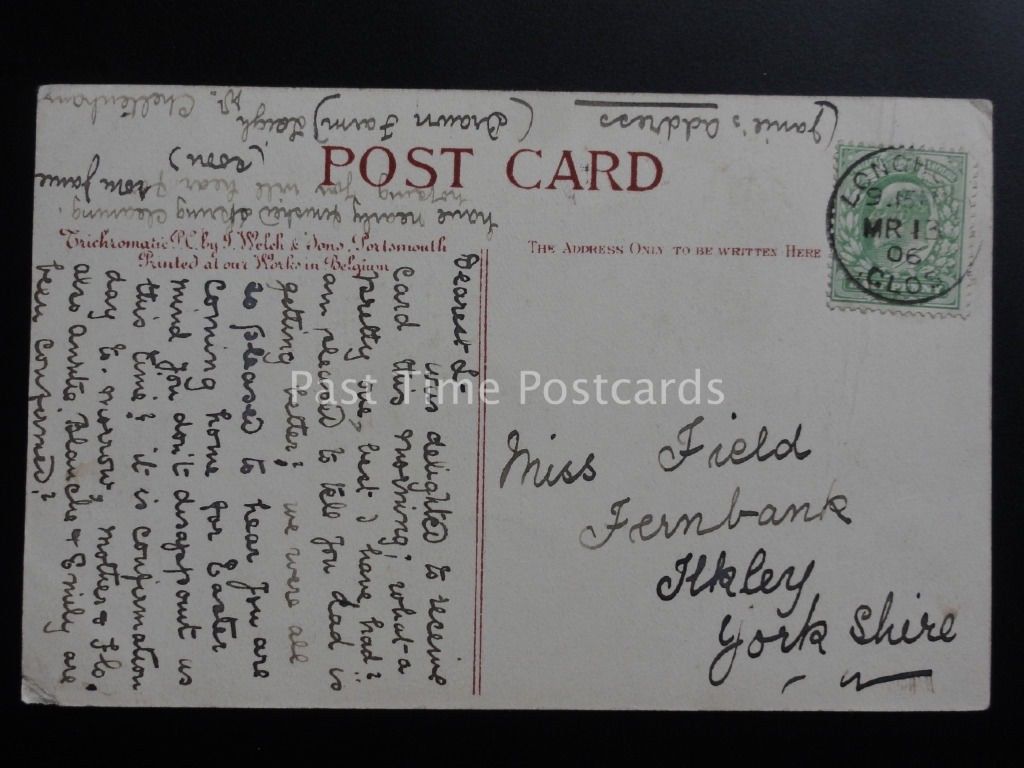 POST CARD
Trichromatic P.C. by J. Welch & Sons, Portsmouth
Printed at our Works in Belgium
THE ADDRESS ONLY TO BE WRITTEN HERE
MR 13
06
GLOS
Miss Field
Fernbank
Ilkley
York Shire
Dearest L.
was delighted to receive
card this morning; what a
pretty one, best I have had;
am pleased to tell you Dad is
getting better; we were all
so pleased to hear you are
coming home for Easter
mind you don't disappoint us
this time; it is confirmation
day to-morrow, mother & Flo,
also Auntie Blanche & Emily are
been confirmed;
have nearly finished spring cleaning.
hoping you will hear from Janie
(soon)
(Janie's address
(Brawn Farm) Leigh
Nr. Cheltenham
Past Time Postcards